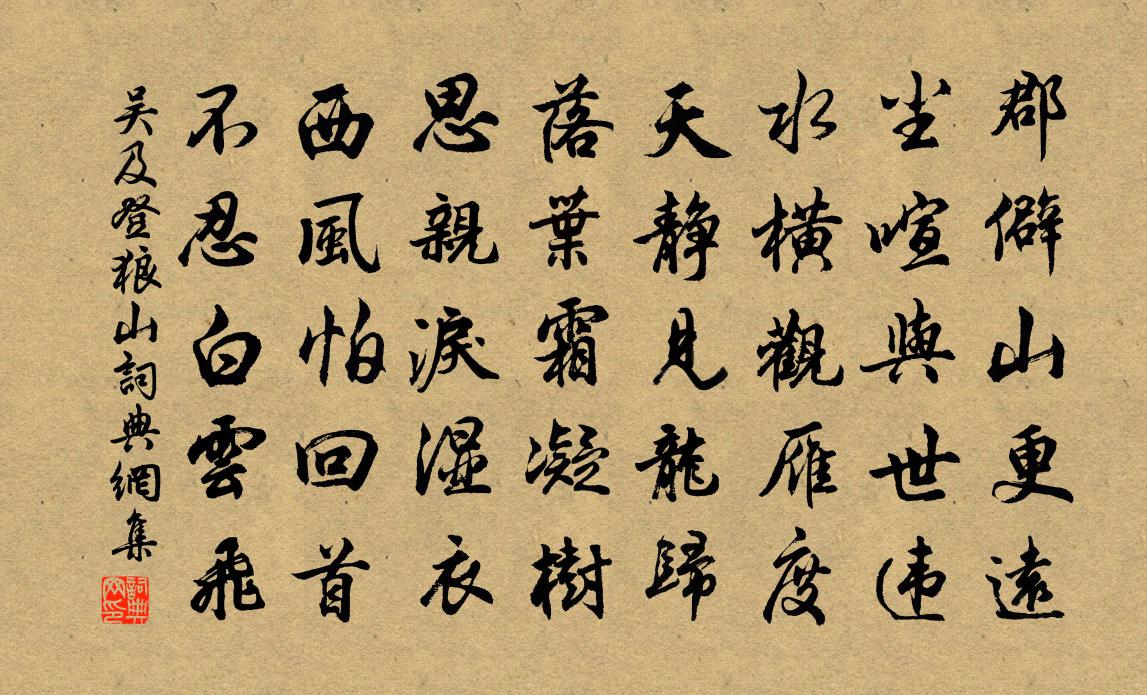 郡僻山更遠
尘喧與世违
水橫觀雁度
天靜見龍歸
落葉霜凝樹
思親淚湿衣
西風怕回首
不忍白雲飛
吴及登狼山詞典網集
詞典网印